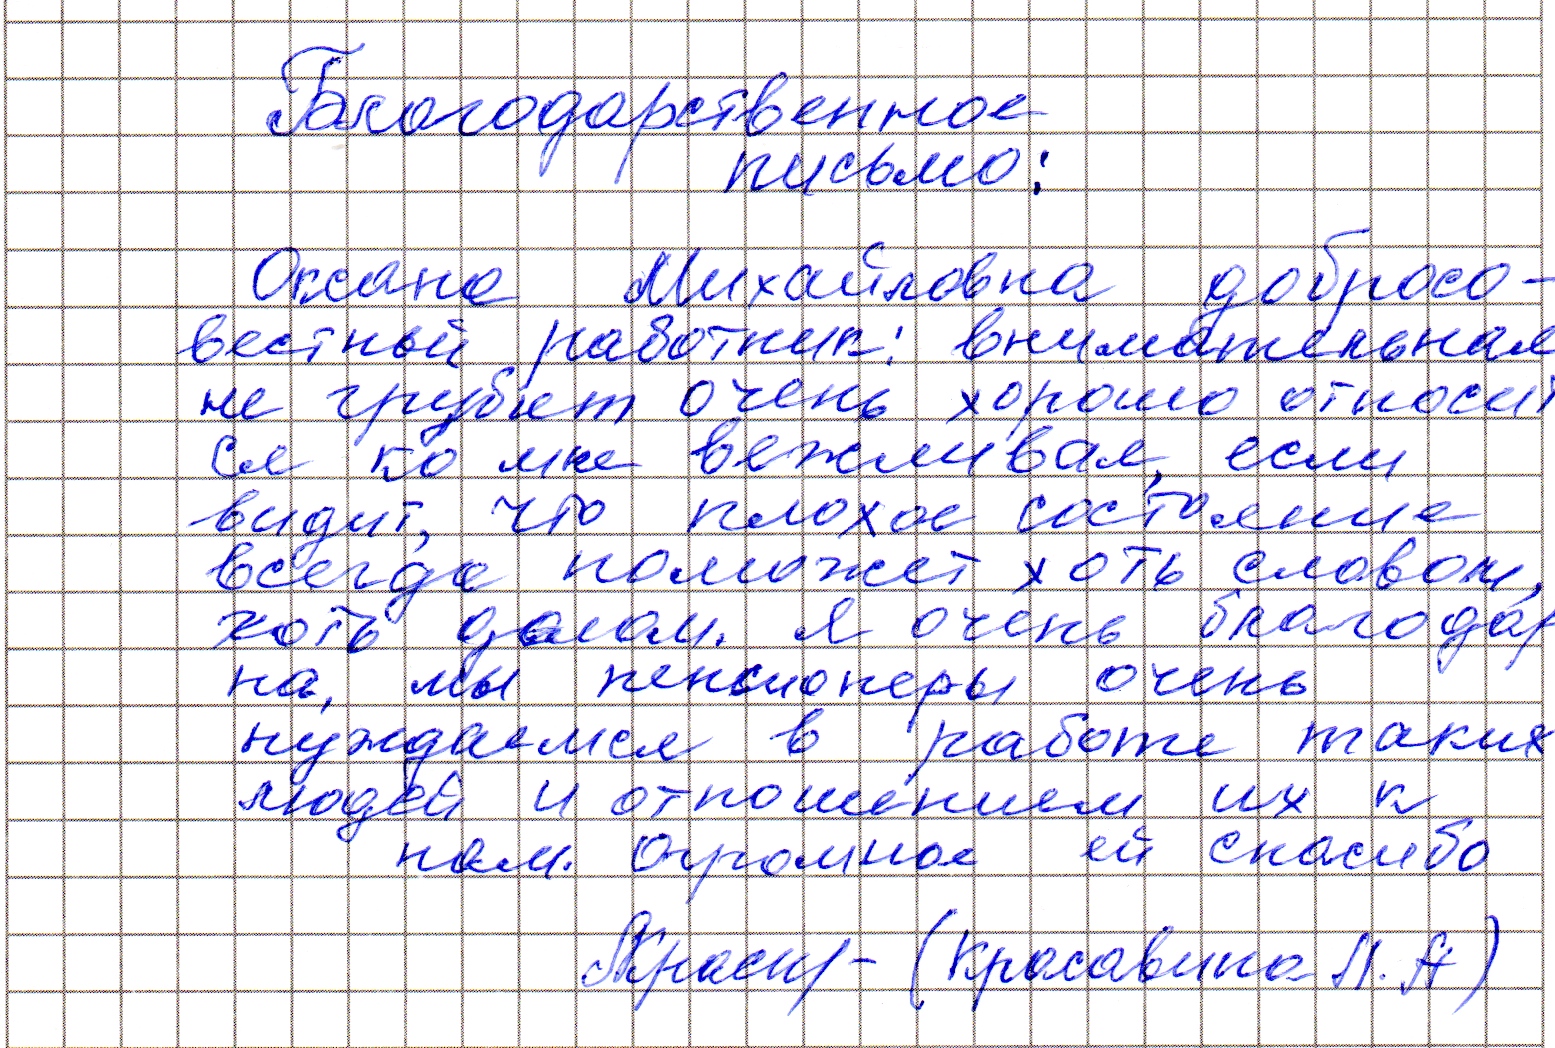 Благодарственное
письмо:
Оксана Михайловна добросо-
вестный работник: внимательная
не грубит очень хорошо относит
ся ко мне вежливая, если
видит, что плохое состояние
всегда поможет хоть словом,
хоть делом. Я очень благодар
на, мы пенсионеры очень
нуждаемся в работе таких
людей и отношением их к
нам. Огромное ей спасибо
(Красавина Л. А)